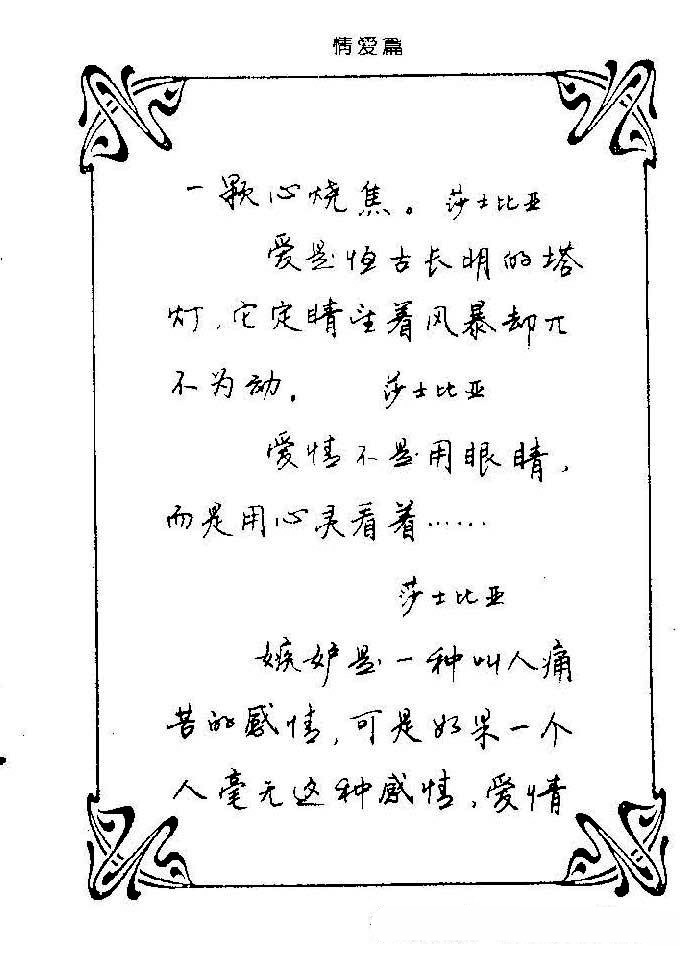 情爱篇
一颗心烧焦。 莎士比亚
爱是恒古长明的塔
灯，它定睛望着风暴却兀
不为动。 莎士比亚
爱情不是用眼睛，
而是用心灵看着……
莎士比亚
嫉妒是一种叫人痛
苦的感情，可是如果一个
人毫无这种感情，爱情